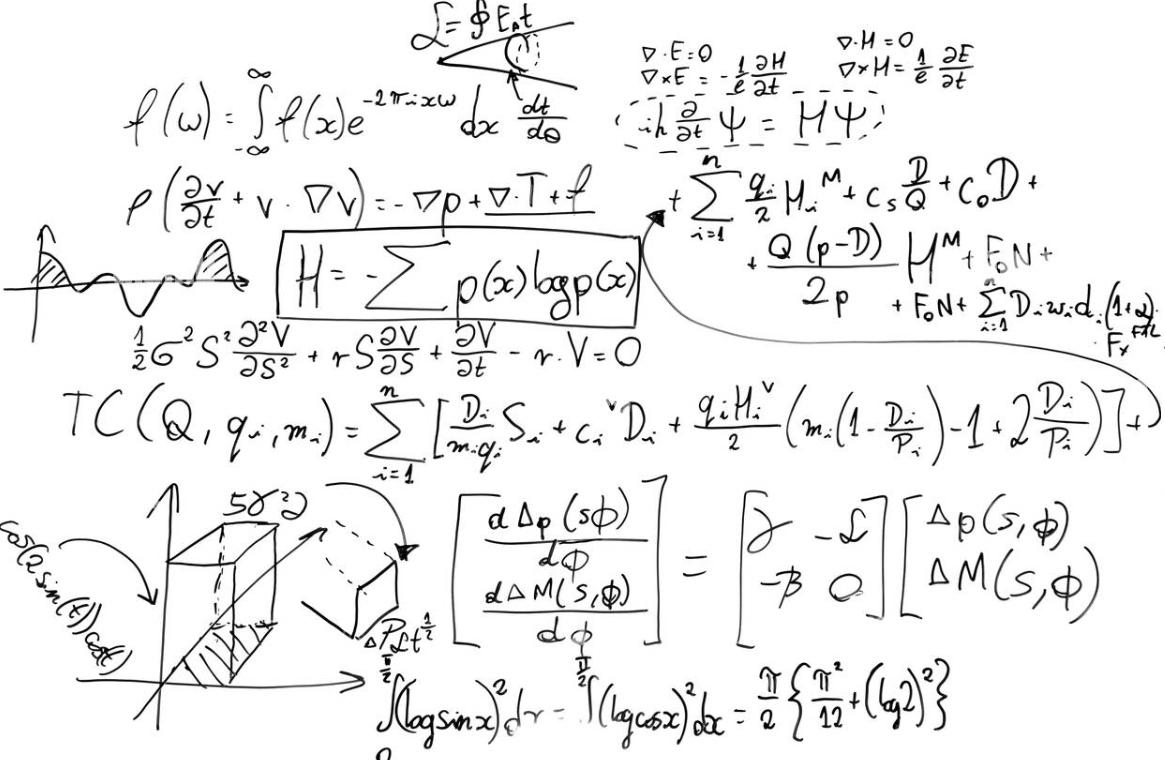 ℒ = ∮ E₀t
∇·E=0 ∇·H=0
∇×E = -1/e ∂H/∂t ∇×H = 1/e ∂E/∂t
f(ω) = ∫_{-∞}^{∞} f(x)e^{-2πixω} dx dt/dθ
iħ ∂/∂t Ψ = HΨ
ρ(∂v/∂t + v·∇v) = -∇p + ∇·T + f
+ ∑_{i=1}^{n} q_i/2 H_i^M + c_s D/Q + c_0 D +
+ Q(p-D)/2p H^M + F_0N +
H = -∑ p(x) log p(x)
+ F_0N + ∑_{i=1}^{n} D_i w_i d_i (1+α)
F_x
1/2 σ² S² ∂²V/∂S² + rS ∂V/∂S + ∂V/∂t - r·V = 0
TC(Q, q_i, m_i) = ∑_{i=1}^{n} [D_i/m_iq_i S_i + c_i^v D_i + q_iH_i^v/2 (m_i(1-D_i/P_i)-1+2D_i/P_i)] +
cos(2sin(t))cos(t)
[dΔp(sϕ)/dϕ dΔM(s,ϕ)/dϕ] = [γ -ℒ -β 0] [Δp(s,ϕ) ΔM(s,ϕ)
∫_0^{π/2} (log sin x)² dx = ∫^{π/2} (log cos x)² dx = π/2 {π²/12 + (log 2)²}